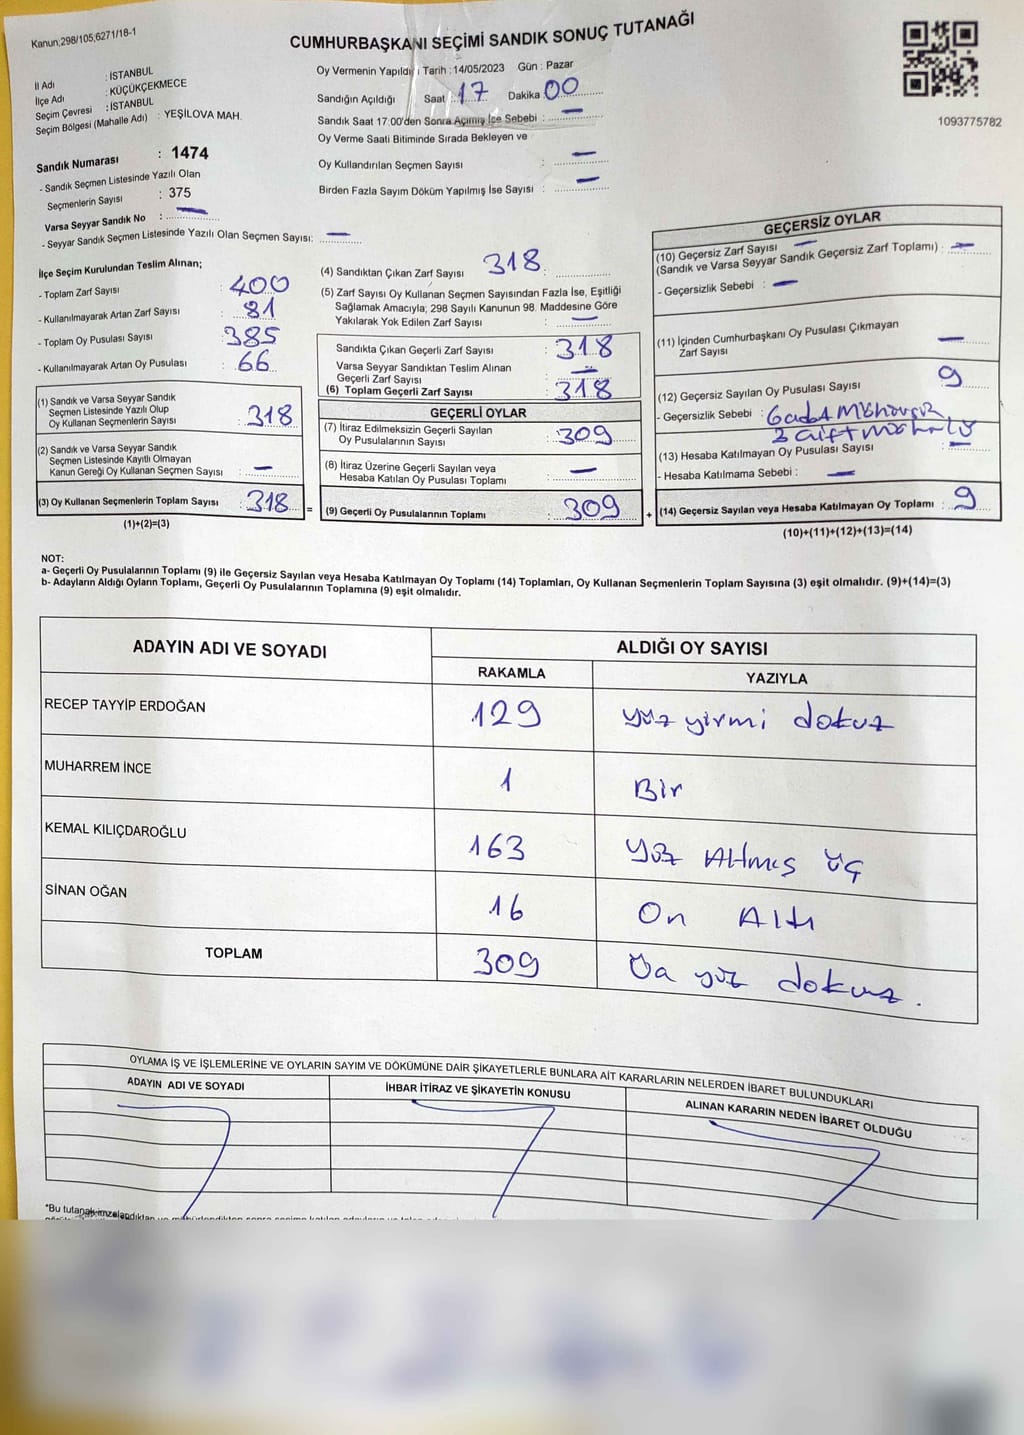 Kanun;298/105;6271/18-1
CUMHURBAŞKANI SEÇİMİ SANDIK SONUÇ TUTANAĞI
1093775782
İl Adı : İSTANBUL
İlçe Adı : KÜÇÜKÇEKMECE
Seçim Çevresi : İSTANBUL
Seçim Bölgesi (Mahalle Adı) : YEŞİLOVA MAH.
Sandık Numarası : 1474
- Sandık Seçmen Listesinde Yazılı Olan
Seçmenlerin Sayısı : 375
Varsa Seyyar Sandık No : —
- Seyyar Sandık Seçmen Listesinde Yazılı Olan Seçmen Sayısı: —
Oy Vermenin Yapıldığı Tarih : 14/05/2023 Gün : Pazar
Sandığın Açıldığı Saat : 17 Dakika : 00
Sandık Saat 17:00'den Sonra Açılmış İse Sebebi : —
Oy Verme Saati Bitiminde Sırada Bekleyen ve
Oy Kullandırılan Seçmen Sayısı : —
Birden Fazla Sayım Döküm Yapılmış İse Sayısı : —
İlçe Seçim Kurulundan Teslim Alınan;
- Toplam Zarf Sayısı : 400
- Kullanılmayarak Artan Zarf Sayısı : 81
- Toplam Oy Pusulası Sayısı : 385
- Kullanılmayarak Artan Oy Pusulası : 66
(1) Sandık ve Varsa Seyyar Sandık
Seçmen Listesinde Yazılı Olup
Oy Kullanan Seçmenlerin Sayısı : 318
(2) Sandık ve Varsa Seyyar Sandık
Seçmen Listesinde Kayıtlı Olmayan
Kanun Gereği Oy Kullanan Seçmen Sayısı : —
(3) Oy Kullanan Seçmenlerin Toplam Sayısı : 318 =
(1)+(2)=(3)
(4) Sandıktan Çıkan Zarf Sayısı 318
(5) Zarf Sayısı Oy Kullanan Seçmen Sayısından Fazla İse, Eşitliği
Sağlamak Amacıyla; 298 Sayılı Kanunun 98. Maddesine Göre
Yakılarak Yok Edilen Zarf Sayısı : —
Sandıkta Çıkan Geçerli Zarf Sayısı : 318
Varsa Seyyar Sandıktan Teslim Alınan
Geçerli Zarf Sayısı : —
(6) Toplam Geçerli Zarf Sayısı : 318
GEÇERLİ OYLAR
(7) İtiraz Edilmeksizin Geçerli Sayılan
Oy Pusulalarının Sayısı : 309
(8) İtiraz Üzerine Geçerli Sayılan veya
Hesaba Katılan Oy Pusulası Toplamı : —
(9) Geçerli Oy Pusulalarının Toplamı : 309 +
GEÇERSİZ OYLAR
(10) Geçersiz Zarf Sayısı —
(Sandık ve Varsa Seyyar Sandık Geçersiz Zarf Toplamı) : —
- Geçersizlik Sebebi : —
(11) İçinden Cumhurbaşkanı Oy Pusulası Çıkmayan
Zarf Sayısı —
(12) Geçersiz Sayılan Oy Pusulası Sayısı 9
- Geçersizlik Sebebi :
(13) Hesaba Katılmayan Oy Pusulası Sayısı : —
- Hesaba Katılmama Sebebi : —
(14) Geçersiz Sayılan veya Hesaba Katılmayan Oy Toplamı : 9
(10)+(11)+(12)+(13)=(14)
NOT:
a- Geçerli Oy Pusulalarının Toplamı (9) ile Geçersiz Sayılan veya Hesaba Katılmayan Oy Toplamı (14) Toplamları, Oy Kullanan Seçmenlerin Toplam Sayısına (3) eşit olmalıdır. (9)+(14)=(3)
b- Adayların Aldığı Oyların Toplamı, Geçerli Oy Pusulalarının Toplamına (9) eşit olmalıdır.
ADAYIN ADI VE SOYADI
ALDIĞI OY SAYISI
RAKAMLA YAZIYLA
RECEP TAYYİP ERDOĞAN 129 yüz yirmi dokuz
MUHARREM İNCE 1 Bir
KEMAL KILIÇDAROĞLU 163 yüz Altmış üç
SİNAN OĞAN 16 On Altı
TOPLAM 309 yüz dokuz.
OYLAMA İŞ VE İŞLEMLERİNE VE OYLARIN SAYIM VE DÖKÜMÜNE DAİR ŞİKAYETLERLE BUNLARA AİT KARARLARIN NELERDEN İBARET BULUNDUKLARI
ADAYIN ADI VE SOYADI İHBAR İTİRAZ VE ŞİKAYETİN KONUSU ALINAN KARARIN NEDEN İBARET OLDUĞU
*Bu tutanak imzalandıktan